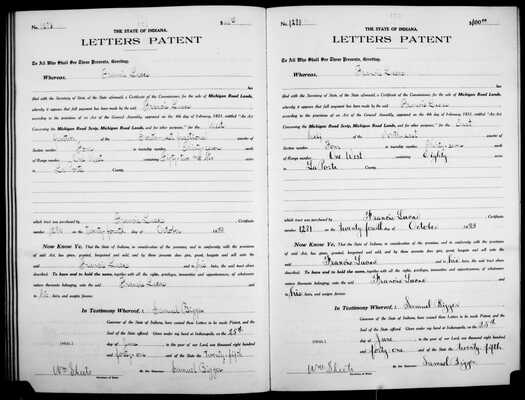 No. 1270
THE STATE OF INDIANA.
LETTERS PATENT
To All Who Shall See These Presents, Greeting:
Whereas, Francis Lucas
has
filed with the Secretary of State, of the State aforesaid, a Certificate of the Commissioner for the sale of Michigan Road Lands,
whereby it appears that full payment has been made by the said Francis Lucas
according to the provisions of an Act of the General Assembly, approved on the 4th day of February, 1832, entitled "An Act
Concerning the Michigan Road Scrip, Michigan Road Lands, and for other purposes," for the West
of the quarter of
Section number Four in township number thirty seven
of Range number One West containing Eighty
La Porte County.
which tract was purchased by Francis Lucas, Certificate
on the twenty fourth day of October
Now Know Ye, That the State of Indiana, in consideration of the premises, and in conformity with the provisions
of said Act, has given, granted, bargained and sold, and by these presents does give, grant, bargain and sell unto the
said Francis Lucas and to his heirs, the said tract above
described. To have and to hold the same, together with all the rights, privileges, immunities and appurtenances, of whatsoever
nature thereunto belonging, unto the said Francis Lucas
and to his heirs, and assigns forever.
In Testimony Whereof, I, Samuel Bigger
Governor of the State of Indiana, have caused these Letters to be made Patent, and the
Seal of the State affixed. Given under my hand at Indianapolis, on the 25th
(SEAL) day of June in the year of our Lord, one thousand eight hundred
and forty-one and of the State the twenty fifth
Wm Sheets By the Governor Samuel Bigger
Secretary of State
No. 1271 $100.00
THE STATE OF INDIANA.
LETTERS PATENT
To All Who Shall See These Presents, Greeting:
Whereas, Francis Lucas
has
filed with the Secretary of State, of the State aforesaid, a Certificate of the Commissioner for the sale of Michigan Road Lands,
whereby it appears that full payment has been made by the said Francis Lucas
according to the provisions of an Act of the General Assembly, approved on the 4th day of February, 1832, entitled "An Act
Concerning the Michigan Road Scrip, Michigan Road Lands, and for other purposes," for the East
Half of the Northwest quarter of
Section number Four in township number thirty seven
of Range number One West containing Eighty
La Porte County.
which tract was purchased by Francis Lucas, Certificate
1271 on the twenty fourth day of October
Now Know Ye, That the State of Indiana, in consideration of the premises, and in conformity with the provisions
of said Act, has given, granted, bargained and sold, and by these presents does give, grant, bargain and sell unto the
said Francis Lucas and to his heirs, the said tract above
described. To have and to hold the same, together with all the rights, privileges, immunities and appurtenances, of whatsoever
nature thereunto belonging, unto the said Francis Lucas
and to his heirs, and assigns forever.
In Testimony Whereof, I, Samuel Bigger
Governor of the State of Indiana, have caused these Letters to be made Patent, and the
Seal of the State affixed. Given under my hand at Indianapolis, on the 25th
(SEAL) day of June in the year of our Lord, one thousand eight hundred
and forty-one and of the State the twenty fifth
Wm Sheets By the Governor Samuel Bigger
Secretary of State